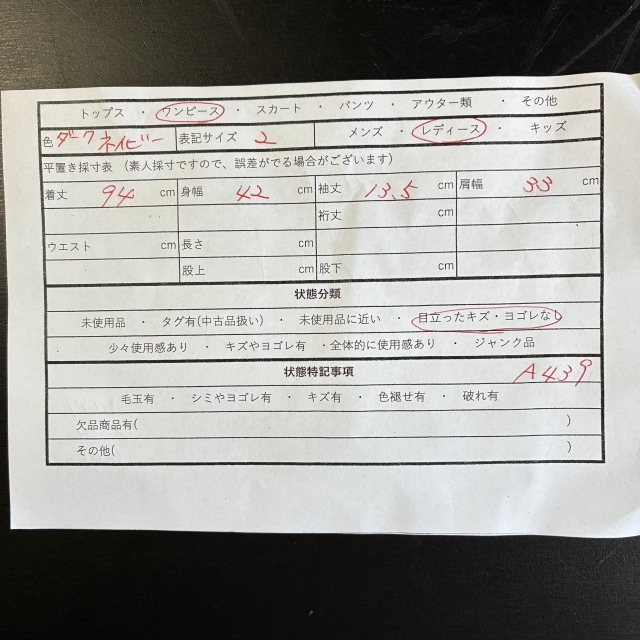 トップス ・ ワンピース ・ スカート ・ パンツ ・ アウター類 ・ その他
色 ダークネイビー 表記サイズ 2 メンズ ・ レディース ・ キッズ
平置き採寸表 (素人採寸ですので、誤差がでる場合がございます)
着丈 94 cm 身幅 42 cm 袖丈 13.5 cm 肩幅 33 cm
裄丈 cm
ウエスト cm 長さ cm
股上 cm 股下 cm
状態分類
未使用品 ・ タグ有(中古品扱い) ・ 未使用品に近い ・ 目立ったキズ・ヨゴレなし
・ 少々使用感あり ・ キズやヨゴレ有 ・全体的に使用感あり ・ ジャンク品
状態特記事項 A439
毛玉有 ・ シミやヨゴレ有 ・ キズ有 ・ 色褪せ有 ・ 破れ有
欠品商品有( )
その他( )